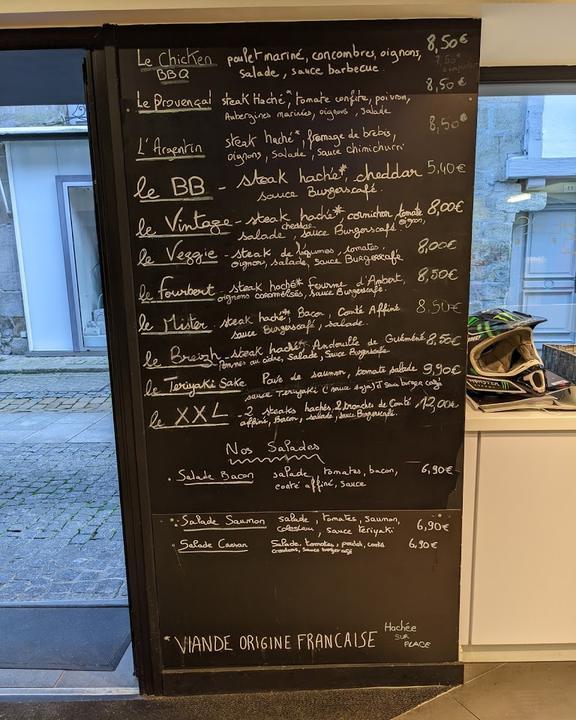 Le Chicken BBQ poulet mariné, concombres, oignons, 8,50€
salade, sauce barbecue.
Le Provençal steak Haché*, tomate confite, poivron, 8,50€
Aubergines marinées, oignons, salade
L'Argentin steak haché*, fromage de brebis, 8,50€
oignons, salade, sauce chimichurri
le BB - steak haché*, cheddar 5,40€
sauce Burgerscafé.
le Vintage - steak haché*, cornichon, tomate 8,00€
cheddar, oignon,
salade, sauce Burgerscafé.
le Veggie - steak de légumes, tomates. 8,00€
oignon, salade, sauce Burgerscafé
le Fourbert - steak haché* fourme d'Ambert, 8,50€
oignons caramélisés, sauce Burgercafé.
le Mister - steak haché*, Bacon, Comté Affiné 8,50€
sauce Burgerscafé, salade.
le Breizh - steak haché* Andouille de Guéméné 8,50€
Pommes au cidre, Salade, Sauce Burgerscafé.
le Teriyaki Sake Pavé de saumon, tomate salade 9,90€
sauce Teriyaki (sauce soja)
le XXL - 2 steaks hachés, 2 tranches de Comté 12,00€
affiné, Bacon, salade, sauce Burgerscafé.
Nos Salades
. Salade Bacon salade, tomates, bacon, 6,90€
comté affiné, sauce
. Salade Saumon salade, tomates, saumon, 6,90€
coleslaw, sauce teriyaki
. Salade Caesar Salade, tomates, poulet, comté 6,90€
croutons, sauce burgercafé
* VIANDE ORIGINE FRANCAISE Hachée
SUR
PLACE
MONSTER